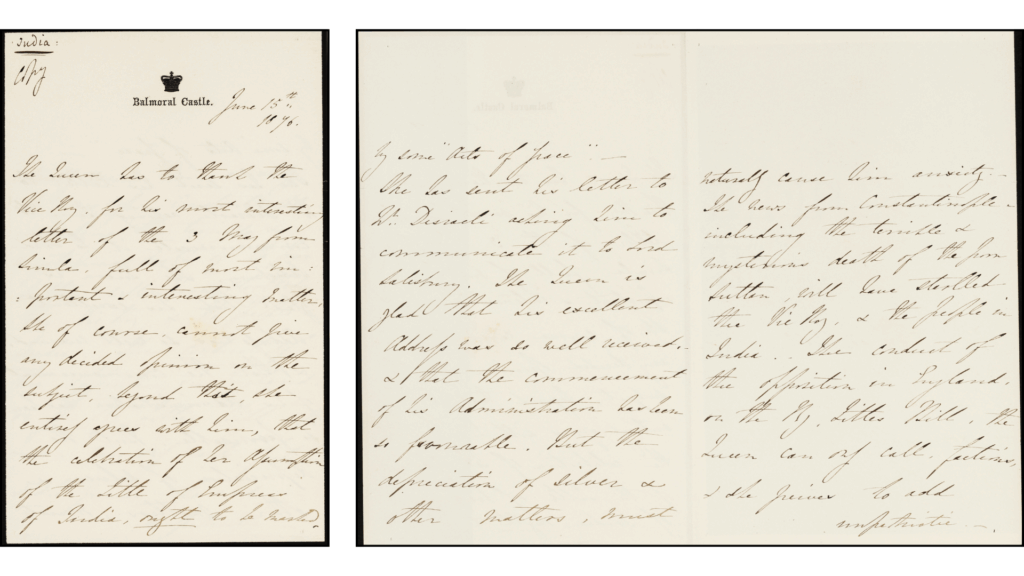 India.
Copy
Balmoral Castle.
June 15th
1876.
The Queen has to thank the
Vice Roy. for his most interesting
letter of the 3 May from
Simla. full of most im:
:portant & interesting matter.
She of course. cannot give
any decided opinion on the
subject, beyond this, she
entirely agrees with him, that
the celebration of her assumption
of the Title of Empress
of India, ought to be marked.
by some "Acts of Grace". —
She has sent his letter to
Mr. Disraeli asking him to
communicate it to Lord
Salisbury. The Queen is
glad that his excellent
Address was so well received. -
& that the commencement
of his Administration has been
so favourable. But the
depreciation of Silver &
other matters, must
naturally cause him anxiety. -
The news from Constantinople -
including the terrible &
mysterious death of the poor
Sultan, will have startled
the Vice Roy. & the people in
India.. The conduct of
the opposition in England.
on the Ry. Titles Bill, the
Queen can only call. factious,
& she grieves to add
unpatriotic —.